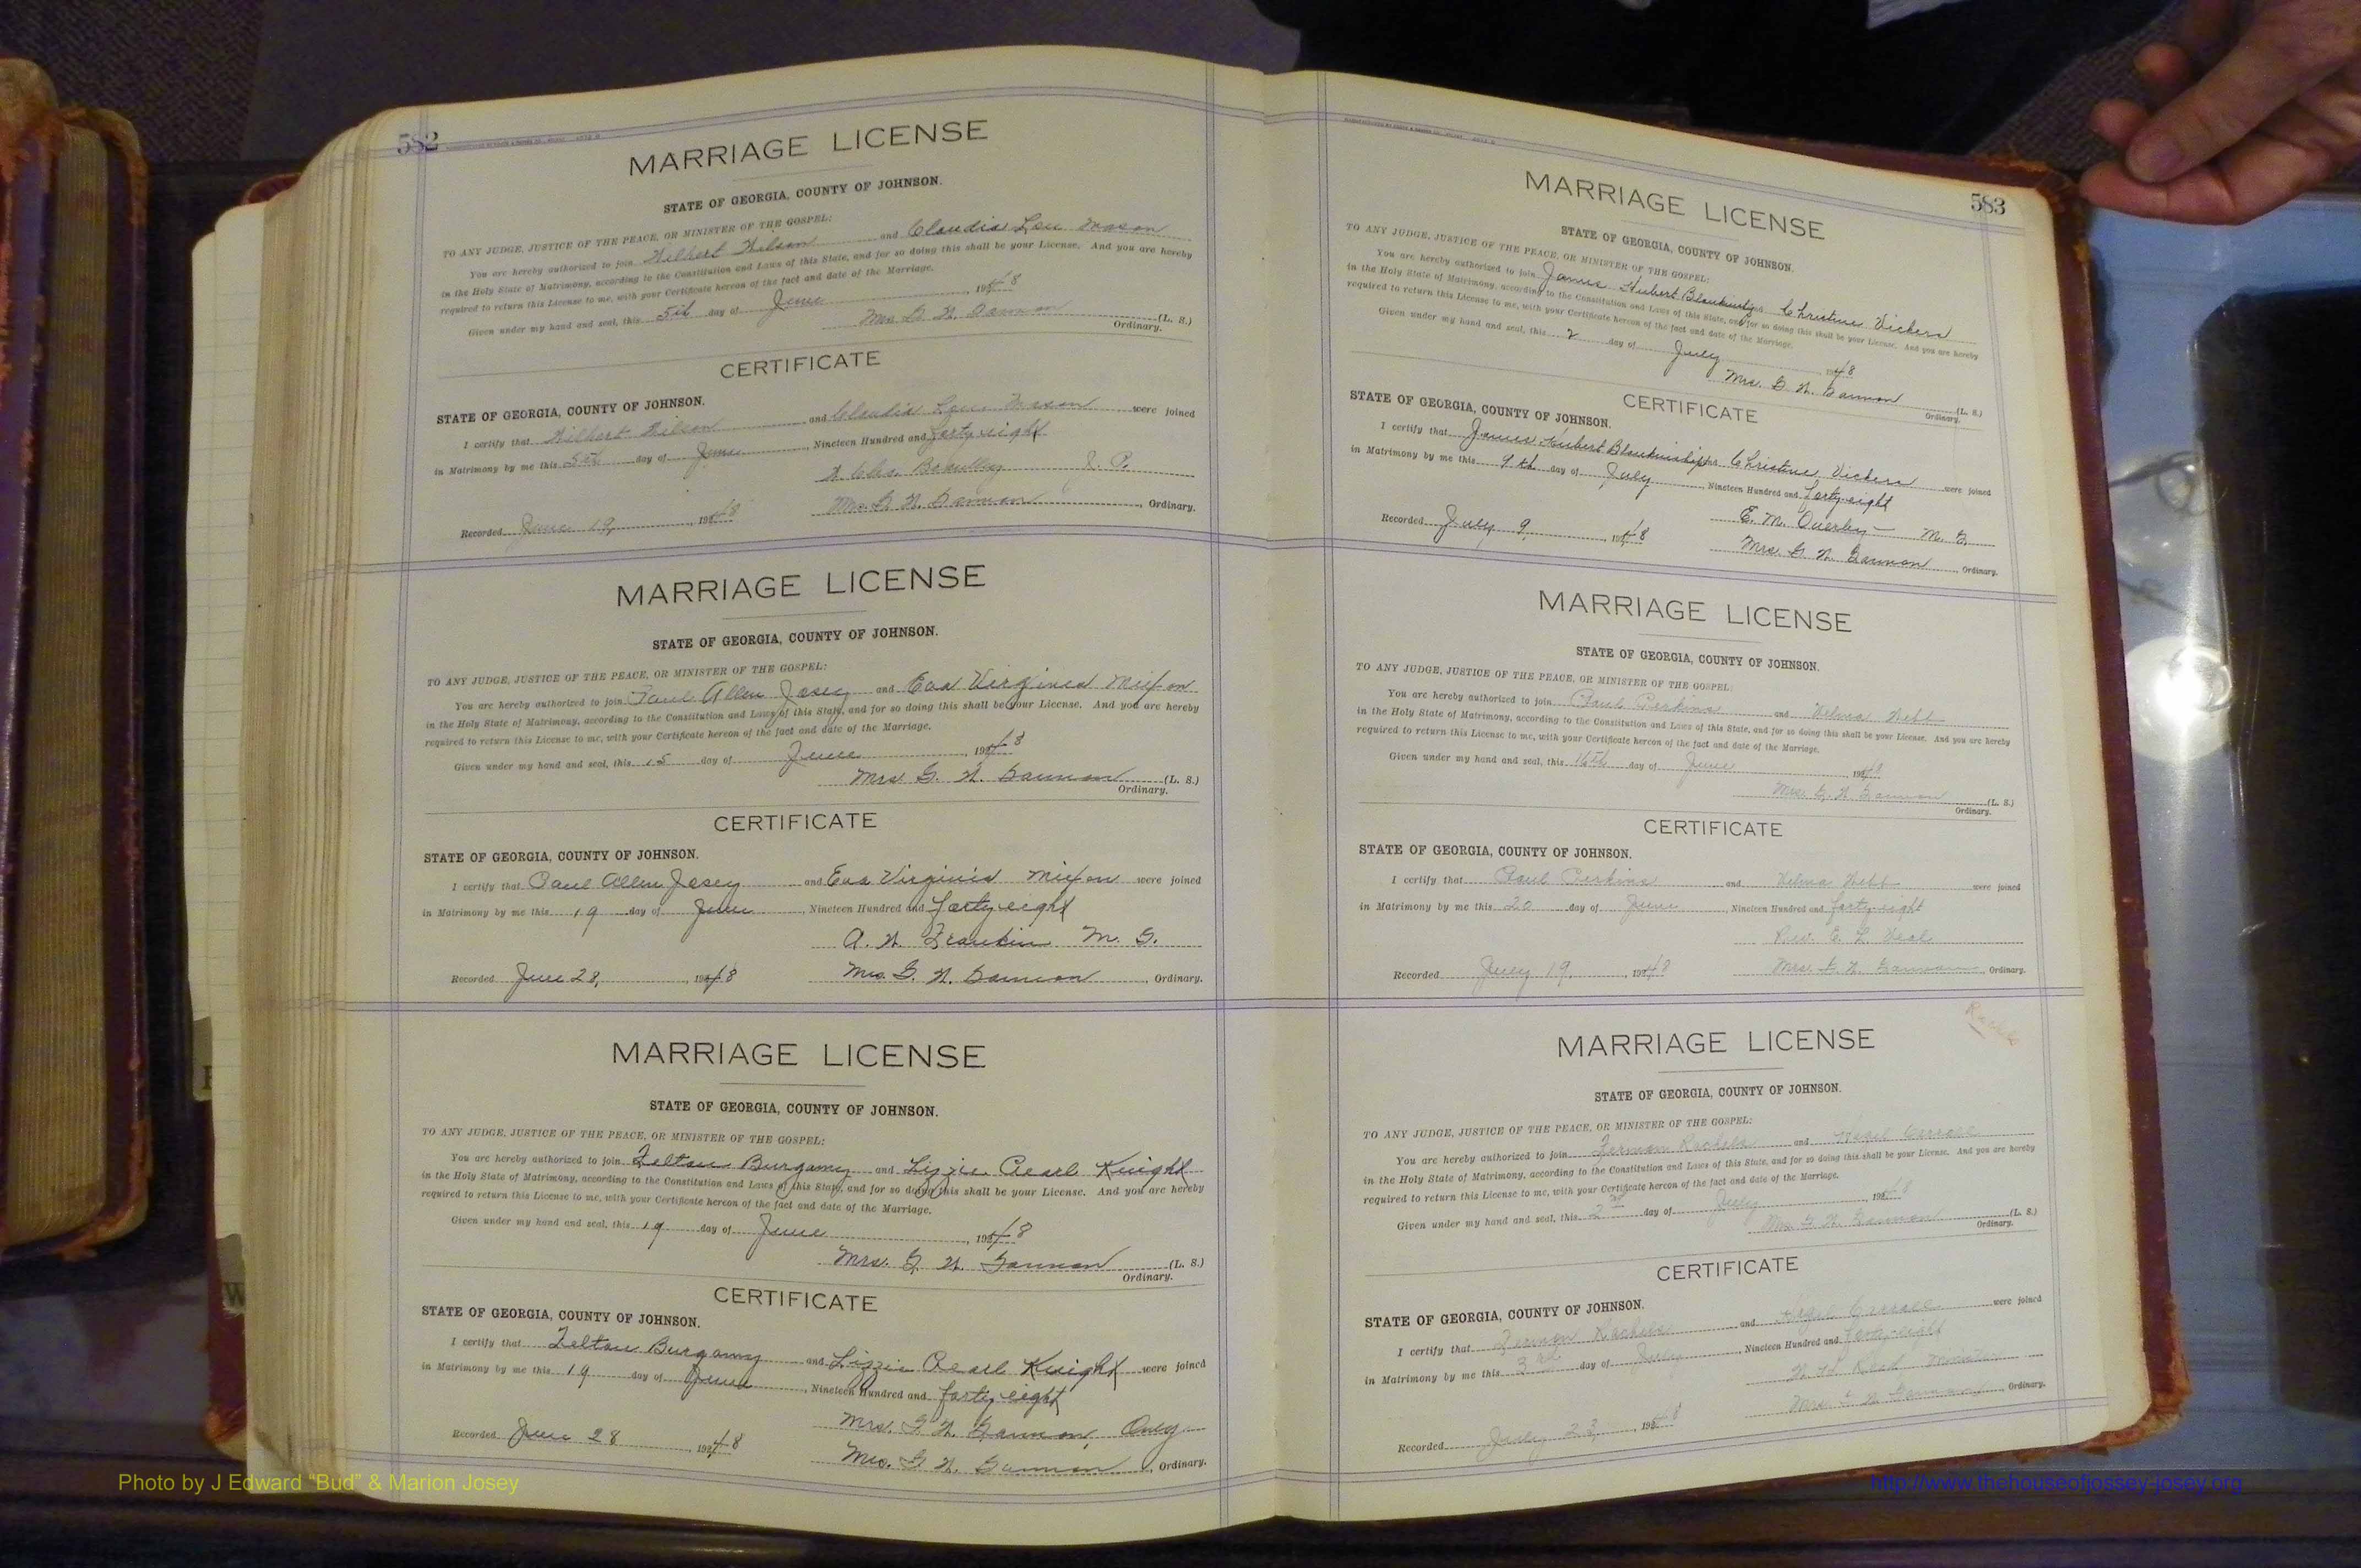 582
MARRIAGE LICENSE
STATE OF GEORGIA, COUNTY OF JOHNSON.
TO ANY JUDGE, JUSTICE OF THE PEACE, OR MINISTER OF THE GOSPEL:
You are hereby authorized to join Wilbert Wilson and Claudia Lou Mason
in the Holy State of Matrimony, according to the Constitution and Laws of this State, and for so doing this shall be your License. And you are hereby
required to return this License to me, with your Certificate hereon of the fact and date of the Marriage.
Given under my hand and seal, this 5th day of June 1948
Mrs. G. W. (L. S.)
Ordinary.
CERTIFICATE
STATE OF GEORGIA, COUNTY OF JOHNSON.
I certify that Wilbert Wilson and Claudia Lou Mason were joined
in Matrimony by me this 5th day of June, Nineteen Hundred and forty eight
J. P.
Recorded June 19, 1948 Mrs. G. W. Ordinary.
MARRIAGE LICENSE
STATE OF GEORGIA, COUNTY OF JOHNSON.
TO ANY JUDGE, JUSTICE OF THE PEACE, OR MINISTER OF THE GOSPEL:
You are hereby authorized to join Paul Allen Josey and Eva Virginia Mixon
in the Holy State of Matrimony, according to the Constitution and Laws of this State, and for so doing this shall be your License. And you are hereby
required to return this License to me, with your Certificate hereon of the fact and date of the Marriage.
Given under my hand and seal, this 15 day of June, 1948
Mrs. G. W. (L. S.)
Ordinary.
CERTIFICATE
STATE OF GEORGIA, COUNTY OF JOHNSON.
I certify that Paul Allen Josey and Eva Virginia Mixon were joined
in Matrimony by me this 19 day of June, Nineteen Hundred and forty eight
A. W. M. G.
Recorded June 28, 1948 Mrs. G. W. Ordinary.
MARRIAGE LICENSE
STATE OF GEORGIA, COUNTY OF JOHNSON.
TO ANY JUDGE, JUSTICE OF THE PEACE, OR MINISTER OF THE GOSPEL:
You are hereby authorized to join Felton Burgamy and Lizzie Pearl Knight
in the Holy State of Matrimony, according to the Constitution and Laws of this State, and for so doing this shall be your License. And you are hereby
required to return this License to me, with your Certificate hereon of the fact and date of the Marriage.
Given under my hand and seal, this 19 day of June, 1948
Mrs. G. W. (L. S.)
Ordinary.
CERTIFICATE
STATE OF GEORGIA, COUNTY OF JOHNSON.
I certify that Felton Burgamy and Lizzie Pearl Knight were joined
in Matrimony by me this 19 day of June, Nineteen Hundred and forty eight
Mrs. G. W. Ordy
Recorded June 28 1948 Mrs. G. W. Ordinary.
583
MARRIAGE LICENSE
STATE OF GEORGIA, COUNTY OF JOHNSON.
TO ANY JUDGE, JUSTICE OF THE PEACE, OR MINISTER OF THE GOSPEL:
You are hereby authorized to join James Hubert Blankinship and Christine Vickers
in the Holy State of Matrimony, according to the Constitution and Laws of this State, and for so doing this shall be your License. And you are hereby
required to return this License to me, with your Certificate hereon of the fact and date of the Marriage.
Given under my hand and seal, this 2 day of July 1948
Mrs. G. W. (L. S.)
Ordinary.
CERTIFICATE
STATE OF GEORGIA, COUNTY OF JOHNSON.
I certify that James Hubert Blankinship Christine Vickers were joined
in Matrimony by me this day of July, Nineteen Hundred and forty eight
E. M. Overby M. G.
Recorded July 9, 1948 Mrs. G. W. Ordinary.
MARRIAGE LICENSE
STATE OF GEORGIA, COUNTY OF JOHNSON.
TO ANY JUDGE, JUSTICE OF THE PEACE, OR MINISTER OF THE GOSPEL:
You are hereby authorized to join Paul Perkins and Velma Webb
in the Holy State of Matrimony, according to the Constitution and Laws of this State, and for so doing this shall be your License. And you are hereby
required to return this License to me, with your Certificate hereon of the fact and date of the Marriage.
Given under my hand and seal, this 16th day of June, 1948
Mrs. G. W. (L. S.)
Ordinary.
CERTIFICATE
STATE OF GEORGIA, COUNTY OF JOHNSON.
I certify that Paul Perkins and Velma Webb were joined
in Matrimony by me this 20 day of June, Nineteen Hundred and forty eight
Rev. E. L. Neal
Recorded July 19, 1948 Mrs. G. W. Ordinary.
MARRIAGE LICENSE
STATE OF GEORGIA, COUNTY OF JOHNSON.
TO ANY JUDGE, JUSTICE OF THE PEACE, OR MINISTER OF THE GOSPEL:
You are hereby authorized to join Rachels and
in the Holy State of Matrimony, according to the Constitution and Laws of this State, and for so doing this shall be your License. And you are hereby
required to return this License to me, with your Certificate hereon of the fact and date of the Marriage.
Given under my hand and seal, this 2nd day of July, 1948
Mrs. G. W. (L. S.)
Ordinary.
CERTIFICATE
STATE OF GEORGIA, COUNTY OF JOHNSON.
I certify that Rachels and were joined
in Matrimony by me this 3rd day of July, Nineteen Hundred and forty eight
Minister
Recorded July 23, 1948 Mrs. G. W. Ordinary.
Photo by J Edward "Bud" & Marion Josey
http://www.thehouseofjossey-josey.org